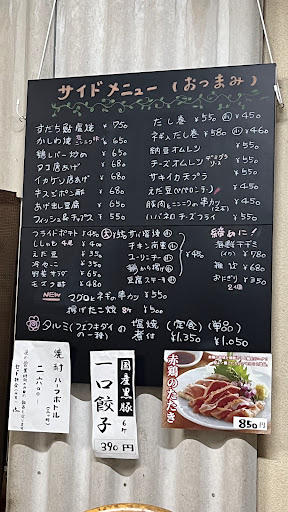 サイドメニュー(おつまみ)
すだち鮎塩焼 ¥750
かしわ焼
鶏レバー炒め ¥350
タコ唐あげ
イカゲソ唐あげ ¥580
キスピボン酢 ¥680
あげ出し豆腐 ¥550
フィッシュ&チップス ¥550
だし巻 ¥550 小 ¥450
ネギ入だし巻 ¥580 小 ¥460
納豆オムレツ ¥550
チーズオムレツ ¥550
サキイカ天プラ ¥550
えだ豆ペペロンチーノ ¥450
豚肉とニンニクの串カツ
ハバネロチーズフライ ¥550
フライドポテト ¥450
ししとう ¥400
えだ豆 ¥350
冷やっこ ¥350
野菜サラダ ¥450
モズク酢 ¥480
サバ塩焼
チキン南蛮
ユーリンチー
鶏から揚げ
豆腐ステーキ
締めに!
¥780
雑炊 ¥580
おにぎり ¥350
NEW マグロとネギの串カツ ¥550
揚げたこ焼 8ケ ¥400
タルミ(フエフキダイの一種)の塩焼 煮付 (定食) ¥1,350 (単品) ¥1,050
焼酎ハーフボトル
国産黒豚
一口餃子
6ケ
390円
赤鶏のたたき
850円